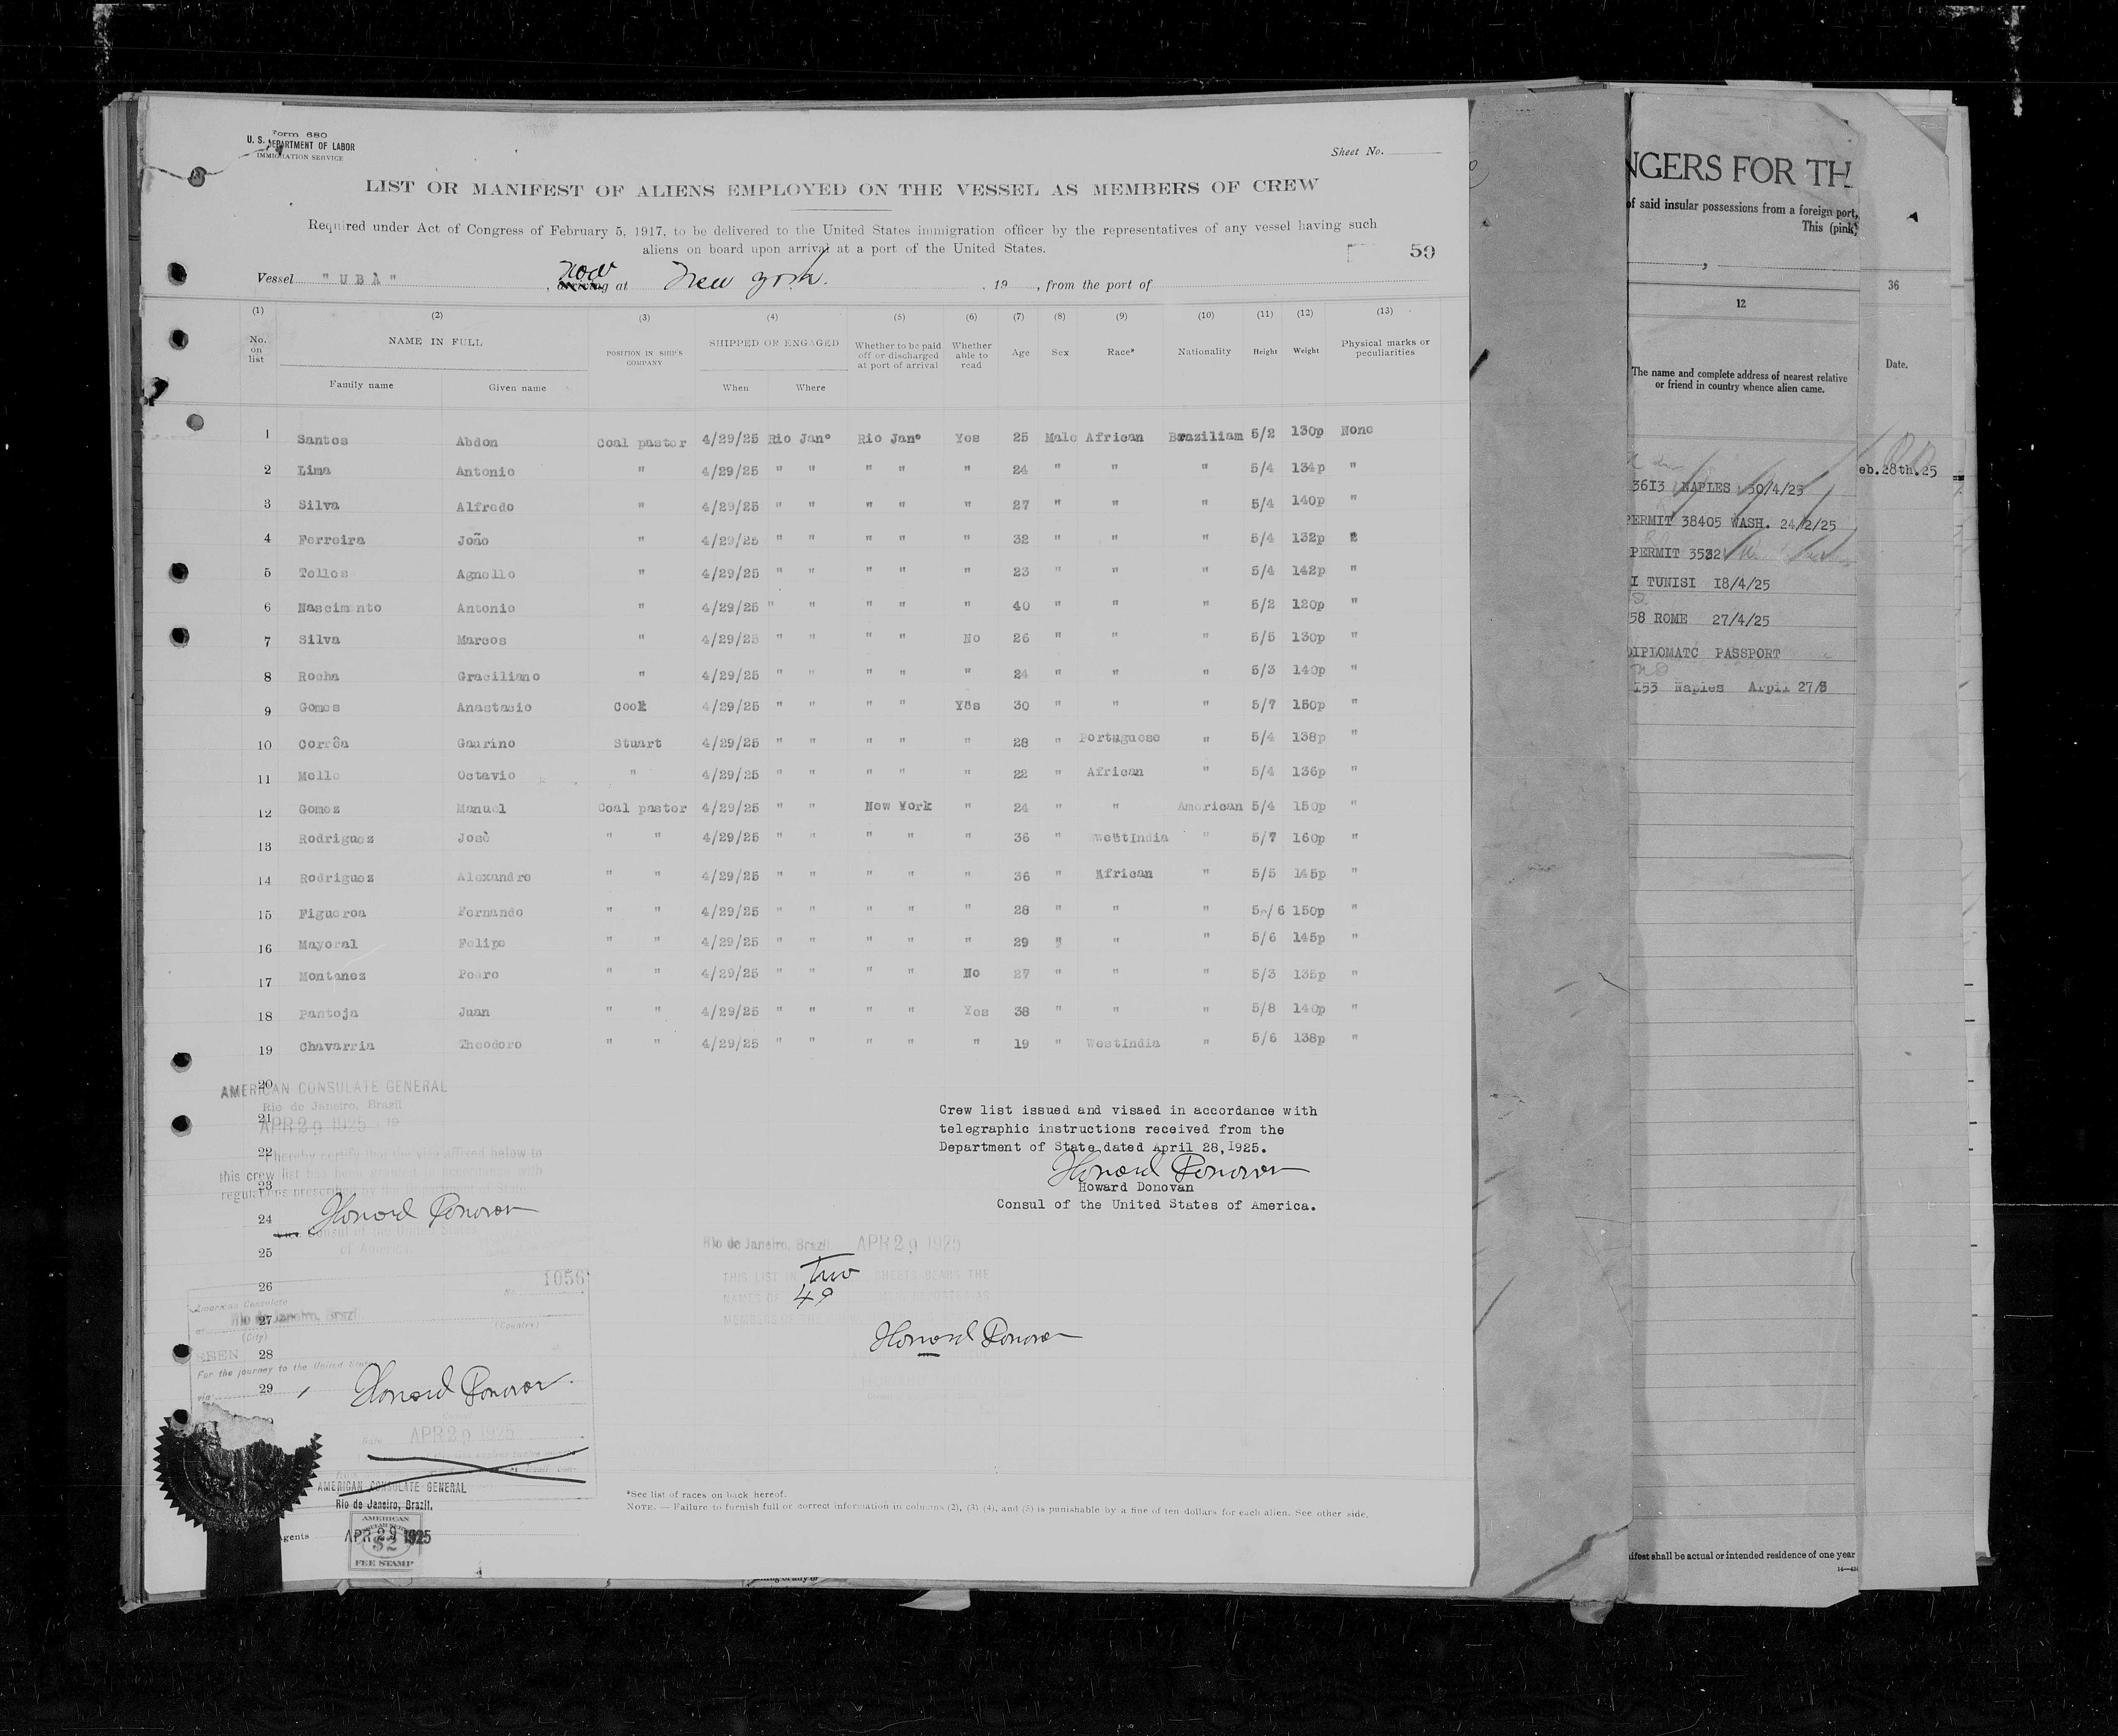 Form 680
U. S. DEPARTMENT OF LABOR
IMMIGRATION SERVICE
Sheet No.
LIST OR MANIFEST OF ALIENS EMPLOYED ON THE VESSEL AS MEMBERS OF CREW
Required under Act of Congress of February 5, 1917, to be delivered to the United States immigration officer by the representatives of any vessel having such
aliens on board upon arrival at a port of the United States.
59
Vessel "UBÁ" , now arriving at New York. , 19 , from the port of
(1) (2) (3) (4) (5) (6) (7) (8) (9) (10) (11) (12) (13)
No. on list NAME IN FULL POSITION IN SHIP'S COMPANY SHIPPED OR ENGAGED Whether to be paid off or discharged at port of arrival Whether able to read Age Sex Race* Nationality Height Weight Physical marks or peculiarities
Family name Given name When Where
1 Santos Abdon Coal pastor 4/29/25 Rio Jan° Rio Jan° Yes 25 Male African Braziliam 5/2 130p None
2 Lima Antonio " 4/29/25 " " " " " 24 " " " 5/4 134p "
3 Silva Alfredo " 4/29/25 " " " " " 27 " " " 5/4 140p "
4 Ferreira João " 4/29/25 " " " " " 32 " " " 5/4 132p
5 Telles Agnello " 4/29/25 " " " " " 23 " " " 5/4 142p "
6 Nascimento Antonio " 4/29/25 " " " " " 40 " " " 5/2 120p "
7 Silva Marcos " 4/29/25 " " " " No 26 " " " 5/5 130p "
8 Rocha Graciliano " 4/29/25 " " " " " 24 " " " 5/3 140p "
9 Gomes Anastacio Cook 4/29/25 " " " " Yes 30 " " " 5/7 150p "
10 Corrêa Gaurino Stuart 4/29/25 " " " " " 28 " Portuguese " 5/4 138p "
11 Mello Octavio " 4/29/25 " " " " " 22 " African " 5/4 136p "
12 Gomez Manuel Coal pastor 4/29/25 " " New York " 24 " " American 5/4 150p "
13 Rodriguez Josè " " 4/29/25 " " " " " 36 " WestIndia " 5/7 160p "
14 Rodriguez Alexandre " " 4/29/25 " " " " " 36 " African " 5/5 145p "
15 Figueroa Fernando " " 4/29/25 " " " " " 28 " " " 5/6 150p "
16 Mayoral Felipe " " 4/29/25 " " " " " 29 " " " 5/6 145p "
17 Montanez Pedro " " 4/29/25 " " " " No 27 " " " 5/3 135p "
18 Pantoja Juan " " 4/29/25 " " " " Yes 38 " " " 5/8 140p "
19 Chavarria Theodoro " " 4/29/25 " " " " " 19 " WestIndia " 5/6 138p "
20
AMERICAN CONSULATE GENERAL
Rio de Janeiro, Brazil
21
APR 29 1925 19
22
I hereby certify that the visa affixed below to
this crew list has been granted in accordance with
23
regulations prescribed by the Department of State
24
Howard Donovan
Consul of the United States
of America.
25
Crew list issued and visaed in accordance with
telegraphic instructions received from the
Department of State dated April 28,1925.
Howard Donovan
Howard Donovan
Consul of the United States of America.
Rio de Janeiro, Brazil APR 29 1925
THIS LIST IN two SHEETS BEARS THE
NAMES OF 49 REPORTED AS
MEMBERS OF THE CREW
Howard Donovan
26
1056
No.
American Consulate
at Rio de Janeiro, Brazil
27
(City) (Country)
SEEN
28
For the journey to the United States
via
29
Howard Donovan.
Date APR 29 1925
AMERICAN CONSULATE GENERAL
Rio de Janeiro, Brazil.
AMERICAN
APR 29 1925
$2
FEE STAMP
gents
*See list of races on back hereof.
NOTE. — Failure to furnish full or correct information in columns (2), (3) (4), and (5) is punishable by a fine of ten dollars for each alien. See other side.
NGERS FOR TH
of said insular possessions from a foreign port,
This (pink)
12
The name and complete address of nearest relative
or friend in country whence alien came.
3613 NAPLES 30/4/25
PERMIT 38405 WASH. 24/2/25
PERMIT 3532
I TUNISI 18/4/25
58 ROME 27/4/25
DIPLOMATC PASSPORT
153 Naples Arpil 27/5
ifest shall be actual or intended residence of one year
36
Date.
eb.28th.25